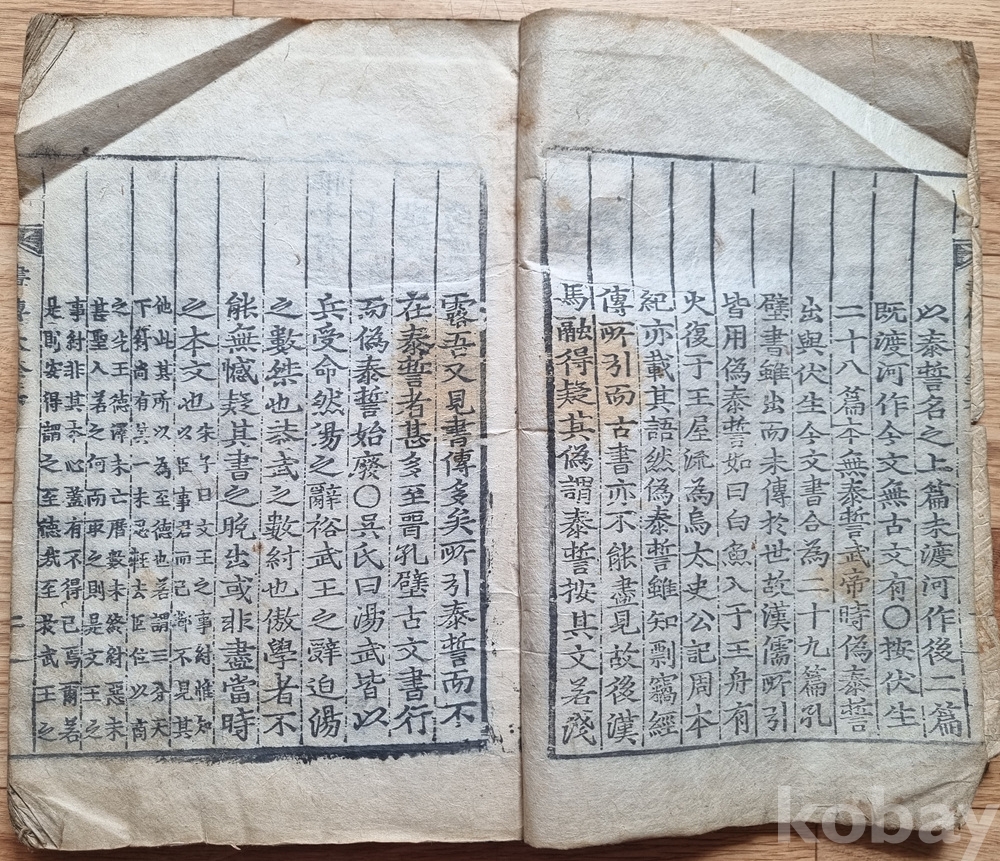 以泰誓名之上篇未渡河作後二篇
既渡河作今文無古文有○按伏生
二十八篇本無泰誓武帝時僞泰誓
出與伏生今文書合爲二十九篇孔
壁書雖出而未傳於世故漢儒所引
皆用僞泰誓如曰白魚入于王舟有
火復于王屋流爲烏太史公記周本
紀亦載其語然僞泰誓雖知剽竊經
傳所引而古書亦不能盡見故後漢
馬融得疑其僞謂泰誓按其文若淺
露吾又見書傳多矣所引泰誓而不
在泰誓者甚多至晉孔壁古文書行
而僞泰誓始廢○吳氏曰湯武皆以
兵受命然湯之辭裕武王之辭迫湯
之數桀也恭武之數紂也傲學者不
能無憾疑其書之晚出或非盡當時
之本文也朱子曰文王之事紂惟知
以臣事君而已都不見其
他此其所以爲至德也若謂三分天
下紂尚有其一未忍輕去臣位以商
之先王德澤未亡曆數未終紂惡未
甚聖人若之何而取之則是文王之
事紂非其本心蓋有不得已焉爾若
是則安得謂之至德哉至於武王之
書傳大全
二
kobay